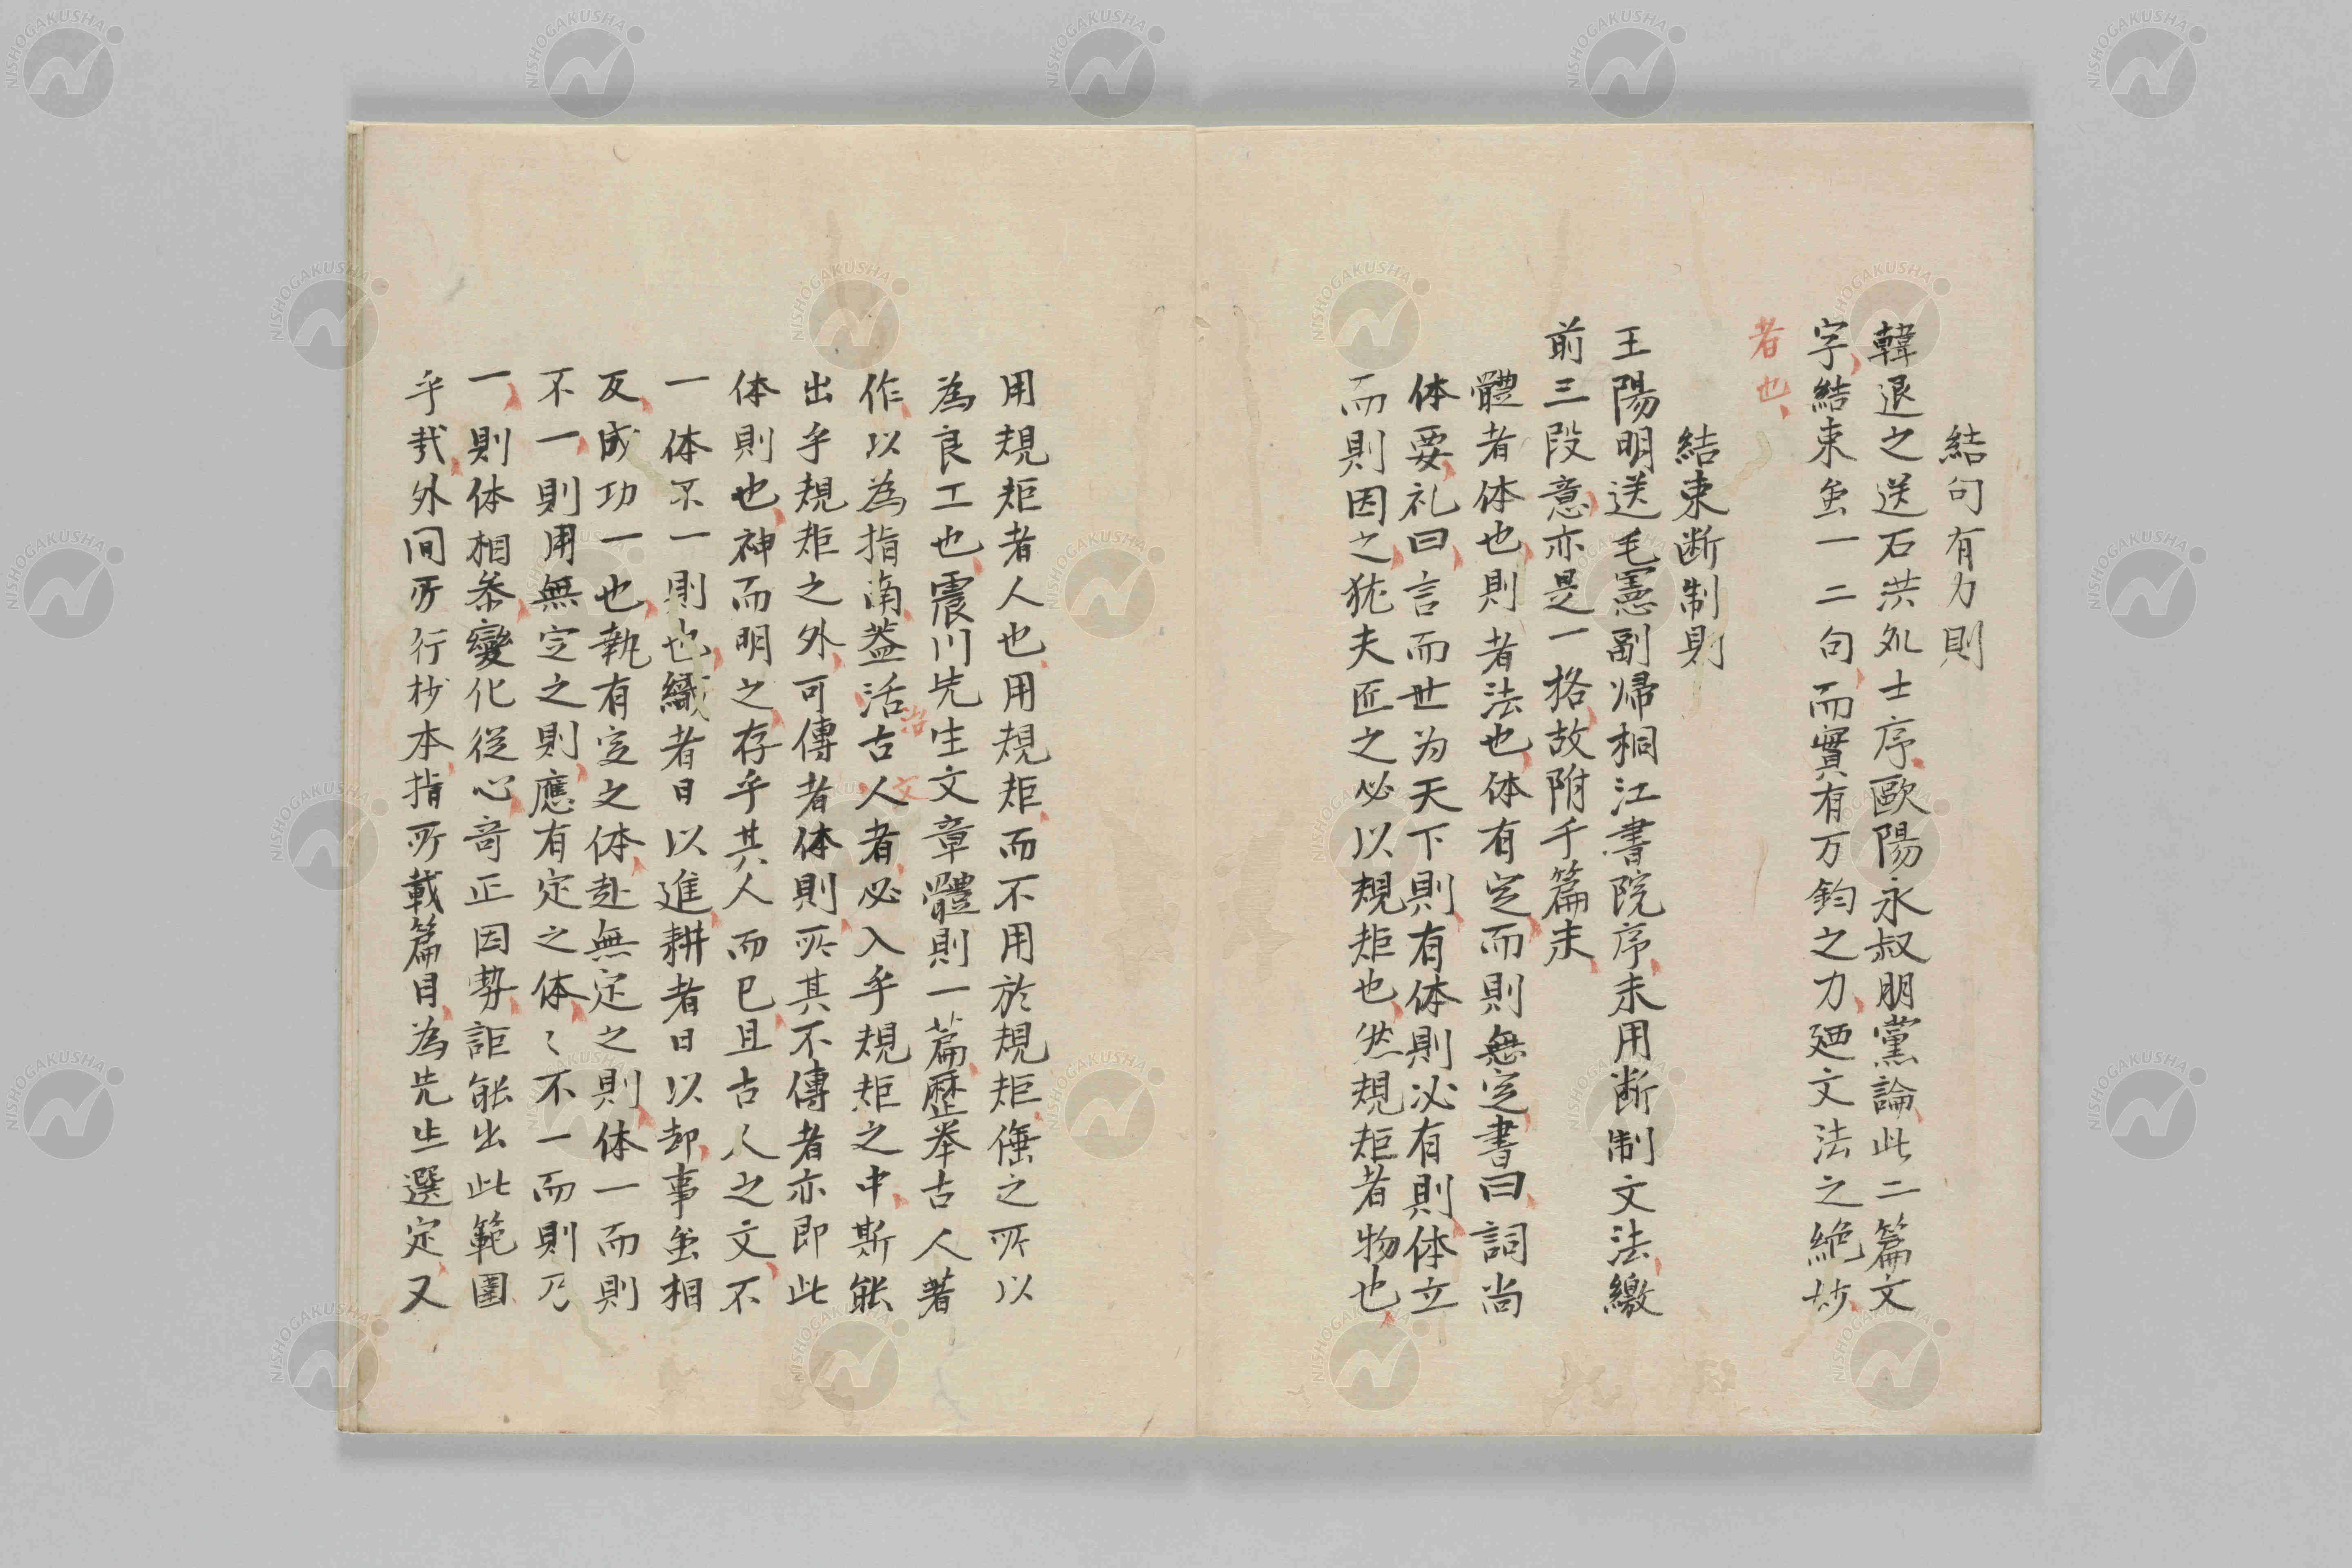 結句有力則
韓退之送石洪処士序歐陽永叔朋黨論此二篇文
字結束虽一二句而實有万鈞之力廼文法之絶妙
者也
結束断制則
王陽明送毛憲副帰桐江書院序末用断制文法繳
前三段意亦是一格故附于篇末
體者体也則者法也体有定而則無定書曰詞尚
体要礼曰言而世为天下則有体則必有則体立
而則因之犹夫匠之必以規矩也然規矩者物也
用規矩者人也用規矩而不用於規矩倕之所以
為良工也震川先生文章體則一篇歴举古人著
作以為指南葢活古人者必入乎規矩之中斯能
治文
出乎規矩之外可傳者体則所其不傳者亦即此
体則也神而明之存乎其人而已且古人之文不
一体不一則也織者日以進耕者日以却事虽相
反成功一也執有定之体赴無定之則体一而則
不一則用無定之則應有定之体〻不一而則乃
一則体相参變化従心竒正因势詎能出此範圍
乎哉外间所行抄本指所載篇目為先生選定又
NISHOGAKUSHA